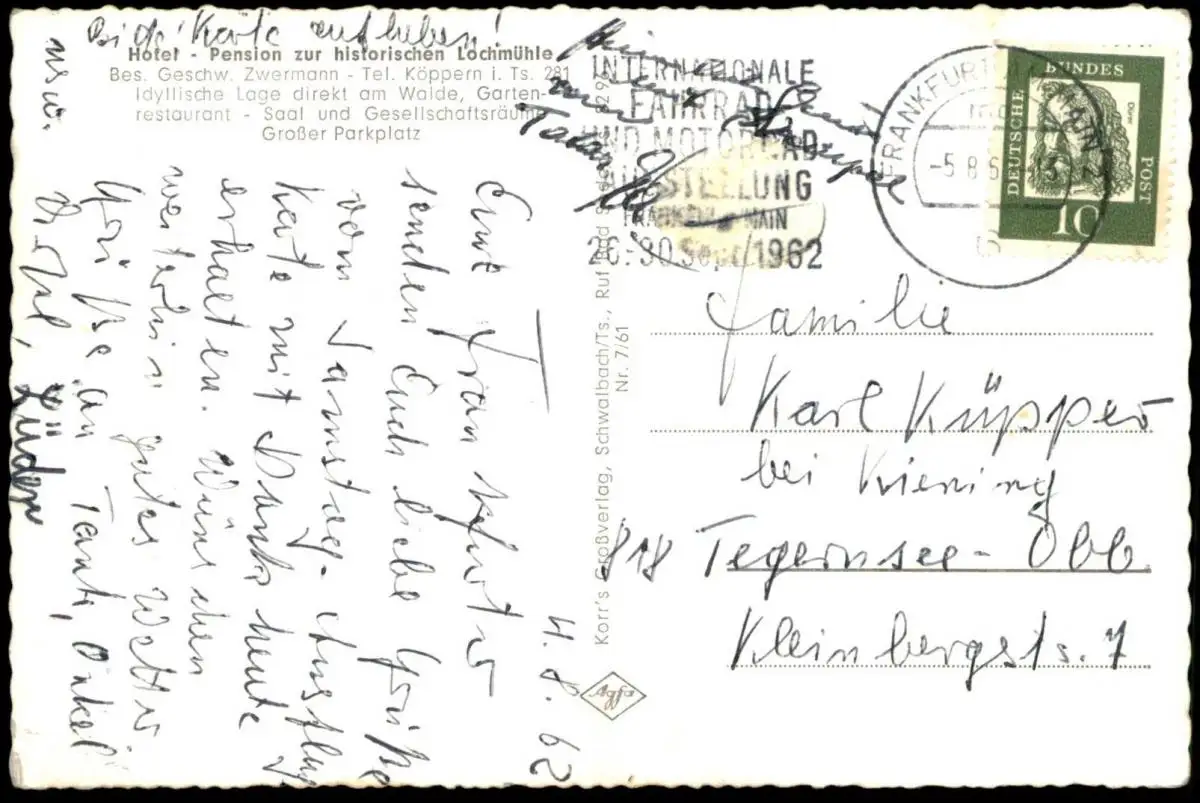 Bitte Karte aufheben!
Hotel - Pension zur historischen Lochmühle
Bes. Geschw. Zwermann - Tel. Köppern i. Ts. 281
Idyllische Lage direkt am Walde, Garten-
restaurant - Saal und Gesellschaftsräume
Großer Parkplatz
4. 8. 62
senden Euch liebe Grüße
vom Samstag-Ausflug
Karte mit Dank heute
erhalten. Wünschen
weiterhin gutes Wetter
Grüße an Tante, Onkel
usw.
Korr's Großverlag, Schwalbach/Ts., Ruf Bad
Nr. 7/61
INTERNATIONALE
FAHRRAD
UND MOTORRAD
AUSSTELLUNG
FRANKFURT MAIN
26.-30 Sept/1962
FRANKFURT
-5.8.6
DEUTSCHE
BUNDES
POST
Dürer
10
Familie
Karl Küpper
bei Kiening
818 Tegernsee - Obb.
Kleinbergstr. 7